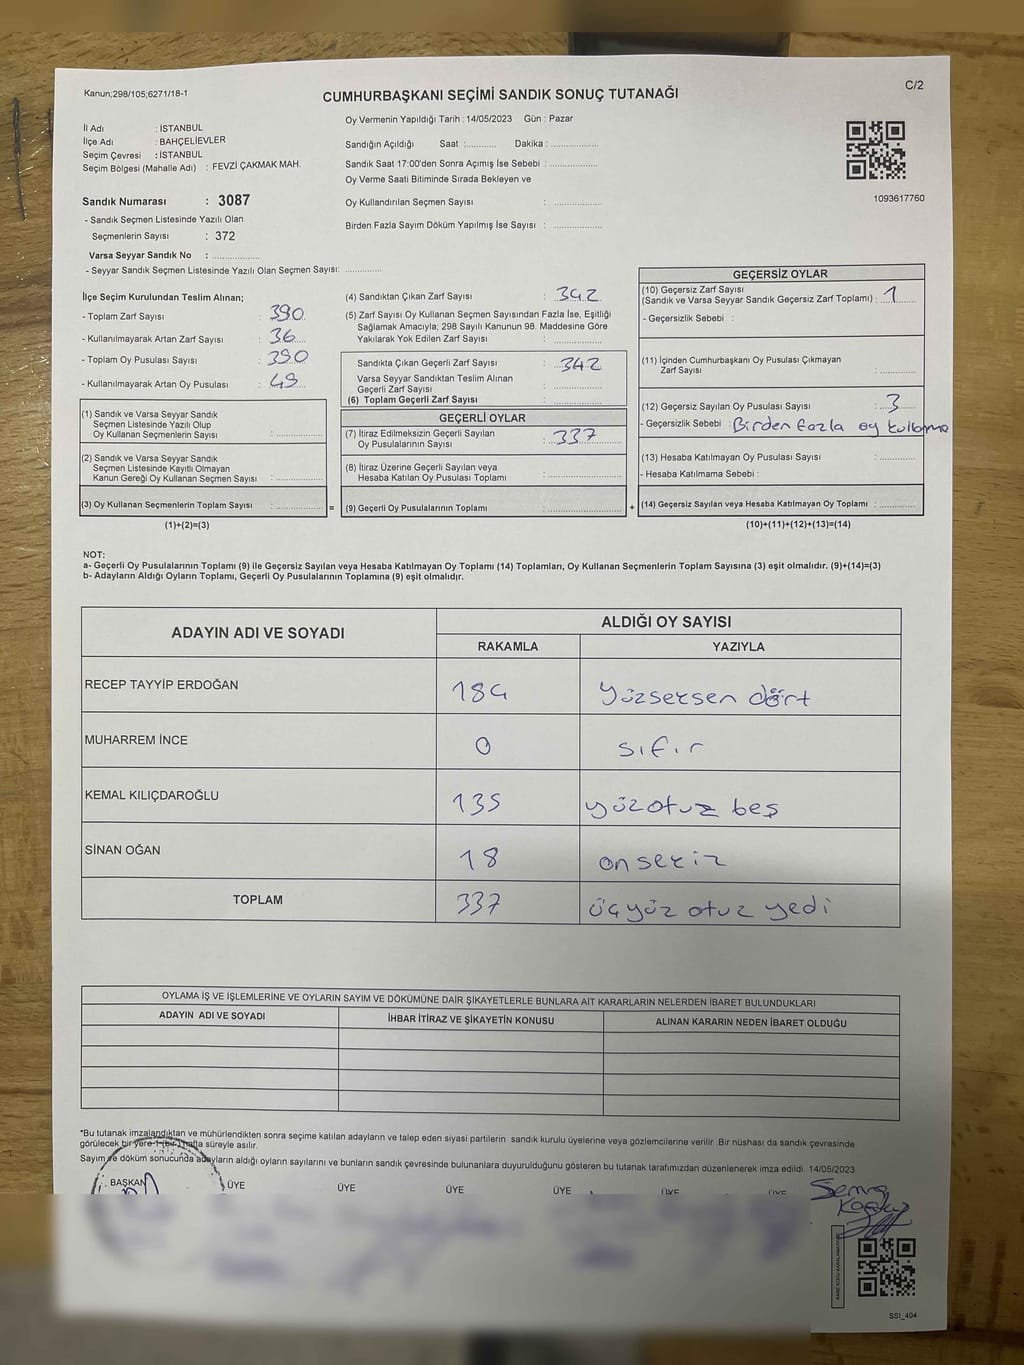 Kanun;298/105;6271/18-1
C/2
CUMHURBAŞKANI SEÇİMİ SANDIK SONUÇ TUTANAĞI
İl Adı : İSTANBUL
İlçe Adı : BAHÇELİEVLER
Seçim Çevresi : İSTANBUL
Seçim Bölgesi (Mahalle Adı) : FEVZİ ÇAKMAK MAH.
Sandık Numarası : 3087
- Sandık Seçmen Listesinde Yazılı Olan
Seçmenlerin Sayısı : 372
Varsa Seyyar Sandık No : ..............
- Seyyar Sandık Seçmen Listesinde Yazılı Olan Seçmen Sayısı: ............
Oy Vermenin Yapıldığı Tarih : 14/05/2023 Gün : Pazar
Sandığın Açıldığı Saat :.......... Dakika : ...............
Sandık Saat 17:00'den Sonra Açımış İse Sebebi : ...............
Oy Verme Saati Bitiminde Sırada Bekleyen ve
Oy Kullandırılan Seçmen Sayısı : ...............
Birden Fazla Sayım Döküm Yapılmış İse Sayısı : ...............
1093617760
İlçe Seçim Kurulundan Teslim Alınan;
- Toplam Zarf Sayısı : 390
- Kullanılmayarak Artan Zarf Sayısı : 36
- Toplam Oy Pusulası Sayısı : 390
- Kullanılmayarak Artan Oy Pusulası : 49
(1) Sandık ve Varsa Seyyar Sandık
Seçmen Listesinde Yazılı Olup
Oy Kullanan Seçmenlerin Sayısı : ...............
(2) Sandık ve Varsa Seyyar Sandık
Seçmen Listesinde Kayıtlı Olmayan
Kanun Gereği Oy Kullanan Seçmen Sayısı : ...............
(3) Oy Kullanan Seçmenlerin Toplam Sayısı : ...............
(1)+(2)=(3)
=
(4) Sandıktan Çıkan Zarf Sayısı : 342
(5) Zarf Sayısı Oy Kullanan Seçmen Sayısından Fazla İse, Eşitliği
Sağlamak Amacıyla; 298 Sayılı Kanunun 98. Maddesine Göre
Yakılarak Yok Edilen Zarf Sayısı : ...............
Sandıkta Çıkan Geçerli Zarf Sayısı : 342
Varsa Seyyar Sandıktan Teslim Alınan
Geçerli Zarf Sayısı : ...............
(6) Toplam Geçerli Zarf Sayısı : ...............
GEÇERLİ OYLAR
(7) İtiraz Edilmeksizin Geçerli Sayılan
Oy Pusulalarının Sayısı : 337
(8) İtiraz Üzerine Geçerli Sayılan veya
Hesaba Katılan Oy Pusulası Toplamı : ...............
(9) Geçerli Oy Pusulalarının Toplamı : ...............
+
GEÇERSİZ OYLAR
(10) Geçersiz Zarf Sayısı
(Sandık ve Varsa Seyyar Sandık Geçersiz Zarf Toplamı) : 1
- Geçersizlik Sebebi :
(11) İçinden Cumhurbaşkanı Oy Pusulası Çıkmayan
Zarf Sayısı : ............
(12) Geçersiz Sayılan Oy Pusulası Sayısı : 3
- Geçersizlik Sebebi : Birden fazla oy kullanma
(13) Hesaba Katılmayan Oy Pusulası Sayısı : ............
- Hesaba Katılmama Sebebi :
(14) Geçersiz Sayılan veya Hesaba Katılmayan Oy Toplamı : ............
(10)+(11)+(12)+(13)=(14)
NOT:
a- Geçerli Oy Pusulalarının Toplamı (9) ile Geçersiz Sayılan veya Hesaba Katılmayan Oy Toplamı (14) Toplamları, Oy Kullanan Seçmenlerin Toplam Sayısına (3) eşit olmalıdır. (9)+(14)=(3)
b- Adayların Aldığı Oyların Toplamı, Geçerli Oy Pusulalarının Toplamına (9) eşit olmalıdır.
ADAYIN ADI VE SOYADI
ALDIĞI OY SAYISI
RAKAMLA YAZIYLA
RECEP TAYYİP ERDOĞAN 184 yüzseksen dört
MUHARREM İNCE 0 sıfır
KEMAL KILIÇDAROĞLU 135 yüzotuz beş
SİNAN OĞAN 18 onsekiz
TOPLAM 337 üçyüz otuz yedi
OYLAMA İŞ VE İŞLEMLERİNE VE OYLARIN SAYIM VE DÖKÜMÜNE DAİR ŞİKAYETLERLE BUNLARA AİT KARARLARIN NELERDEN İBARET BULUNDUKLARI
ADAYIN ADI VE SOYADI İHBAR İTİRAZ VE ŞİKAYETİN KONUSU ALINAN KARARIN NEDEN İBARET OLDUĞU
*Bu tutanak imzalandıktan ve mühürlendikten sonra seçime katılan adayların ve talep eden siyasi partilerin sandık kurulu üyelerine veya gözlemcilerine verilir .Bir nüshası da sandık çevresinde
görülecek bir yere 1 (bir) hafta süreyle asılır.
Sayım ve döküm sonucunda adayların aldığı oyların sayılarını ve bunların sandık çevresinde bulunanlara duyurulduğunu gösteren bu tutanak tarafımızdan düzenlenerek imza edildi. 14/05/2023
BAŞKAN ÜYE ÜYE ÜYE ÜYE ÜYE ÜYE
Semra
SSI_404